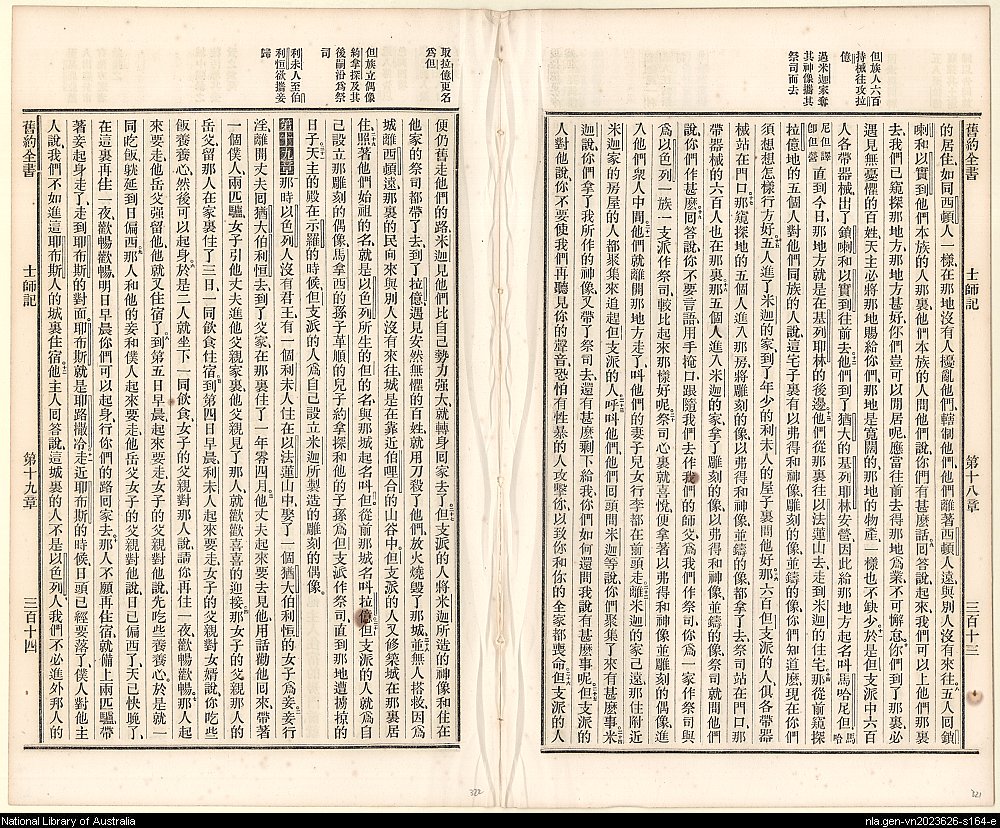 但族人六百
持械往攻拉
億
過米迦家奪
其神像攜其
祭司而去
舊約全書
士師記
第十八章
三百十三
的居住、如同西頓人一樣、在那地沒有人擾亂他們、轄制他們、他們離着西頓人遠、與別人沒有來往。五人回鎖
喇和以實到他們本族的人那裏、他們本族的人問他們說、你們有甚麽話。回答說、起來、我們可以上他們那裏
去、我們已窺探那地方、那地方甚好、你們豈可以閒居呢、應當往前去得那地爲業、不可懈怠。你們到了那裏、必
遇見無憂懼的百姓、天主必將那地賜給你們、那地是寬闊的、那地的物產、一樣也不缺少。於是但支派中六百
人各帶器械出了鎖喇和以實到往前去。他們到了猶大的基列耶林安營、因此給那地方起名叫馬哈尼但、馬哈
尼但譯卽但營直到今日、那地方就是在基列耶林的後邊。他們從那裏往以法蓮山去、走到米迦的住宅。那從前窺探
拉億地的五個人對他們同族的人說、這宅子裏有以弗得和神像、雕刻的像、並鑄的像、你們知道麽、現在你們
須想想怎樣行方好。五人進了米迦的家、到了年少的利未人的屋子裏問他好。那六百但支派的人、俱各帶器
械站在門口。那窺探地的五個人進入那房、將雕刻的像、以弗得和神像、並鑄的像、都拿了去、祭司站在門口、那
帶器械的六百人也在那裏。那五個人進入米迦的家、拿了雕刻的像、以弗得和神像、並鑄的像、祭司就問他們
說、你們作甚麽。回答說、你不要言語、用手掩口、跟隨我們去、作我們的師父、爲我們作祭司、你爲一家作祭司、與
爲以色列一族一支派作祭司、較比起來那樣好呢。祭司心裏就喜悅、便拿著以弗得和神像並雕刻的偶像、進
入他們衆人中間。他們就離開那地方走了、叫他們的妻子兒女行李都在前頭走。離米迦的家已遠、那住附近
米迦家的房屋的人、都聚集來追趕但支派的人、呼叫他們。他們回頭問米迦等說、你們聚集了來、有甚麽事。米
迦說、你們拿了我所作的神像、又帶了祭司去、還有甚麽剩下給我、你們如何還問我說有甚麽事呢。但支派的
人對他說、你不要使我們再聽見你的聲音、恐怕有性暴的人攻擊你、以致你和你的全家都喪命。但支派的人
取拉億更名
爲但
但族立偶像
約拿探及其
後嗣沿爲祭
司
利未人至伯
利恒欲攜妾
歸
便仍舊走他們的路、米迦見他們比自己勢力强大、就轉身回家去了。但支派的人將米迦所造的神像和住在
他家的祭司、都帶了去、到了拉億、遇見安然無懼的百姓、就用刀殺了他們、放火燒毁了那城。並無人搭救、因爲
城離西頓遠、那裏的民向來與別人沒有來往、城是在靠近伯哩合的山谷中。但支派的人又修築城、在那裏居
住。照著他們始祖的名、就是以色列所生的但的名、與那城起名叫但、但從前那城名叫拉億。但支派的人就爲自
己設立那雕刻的偶像、馬拿西的孫子革順的兒子約拿探和他的子孫、爲但支派作祭司、直到那地遭擄掠的
日子。天主的殿在示羅的時候、但支派的人爲自己設立米迦所製造的雕刻的偶像。
第十九章 那時以色列人沒有君王、有一個利未人住在以法蓮山中、娶了一個猶大伯利恒的女子爲妾。妾行
淫、離開丈夫、回猶大伯利恒去、到了父家、在那裏住了一年零四月。他丈夫起來要去見他、用話勸他回來、帶著
一個僕人、兩匹驢、女子引他丈夫進他父親家裏、他父親見了那人、就歡歡喜喜的迎接。那女子的父親、那人的
岳父、留那人在家裏住了三日、一同飲食住宿。到第四日早晨、利未人起來要走、女子的父親對女婿說、你吃些
飯養養心、然後可以起身。於是二人就坐下一同飲食、女子的父親對那人說、請你再住一夜、歡暢歡暢。那人起
來要走、他岳父强留他、他就又住宿了。到第五日早晨起來要走、女子的父親對他說、先吃些養養心、於是就一
同吃飯、躭延到日偏西。那人和他的妾和僕人起來要走、他岳父女子的父親對他說、日已偏西了、天已快晚了、
在這裏再住一夜、歡暢歡暢、明日早晨你們可以起身、行你們的路回家去。那人不願再住宿、就備上兩匹驢、帶
著妾起身走了、走到耶布斯的對面、耶布斯就是耶路撒冷。走近耶布斯的時候、日頭已經要落了、僕人對他主
人說、我們不如進這耶布斯人的城裏住宿。他主人回答說、這城裏的人不是以色列人、我們不必進外邦人的
舊約全書
士師記
第十九章
三百十四
322
321
National Library of Australia
nla.gen-vn2023626-s164-e